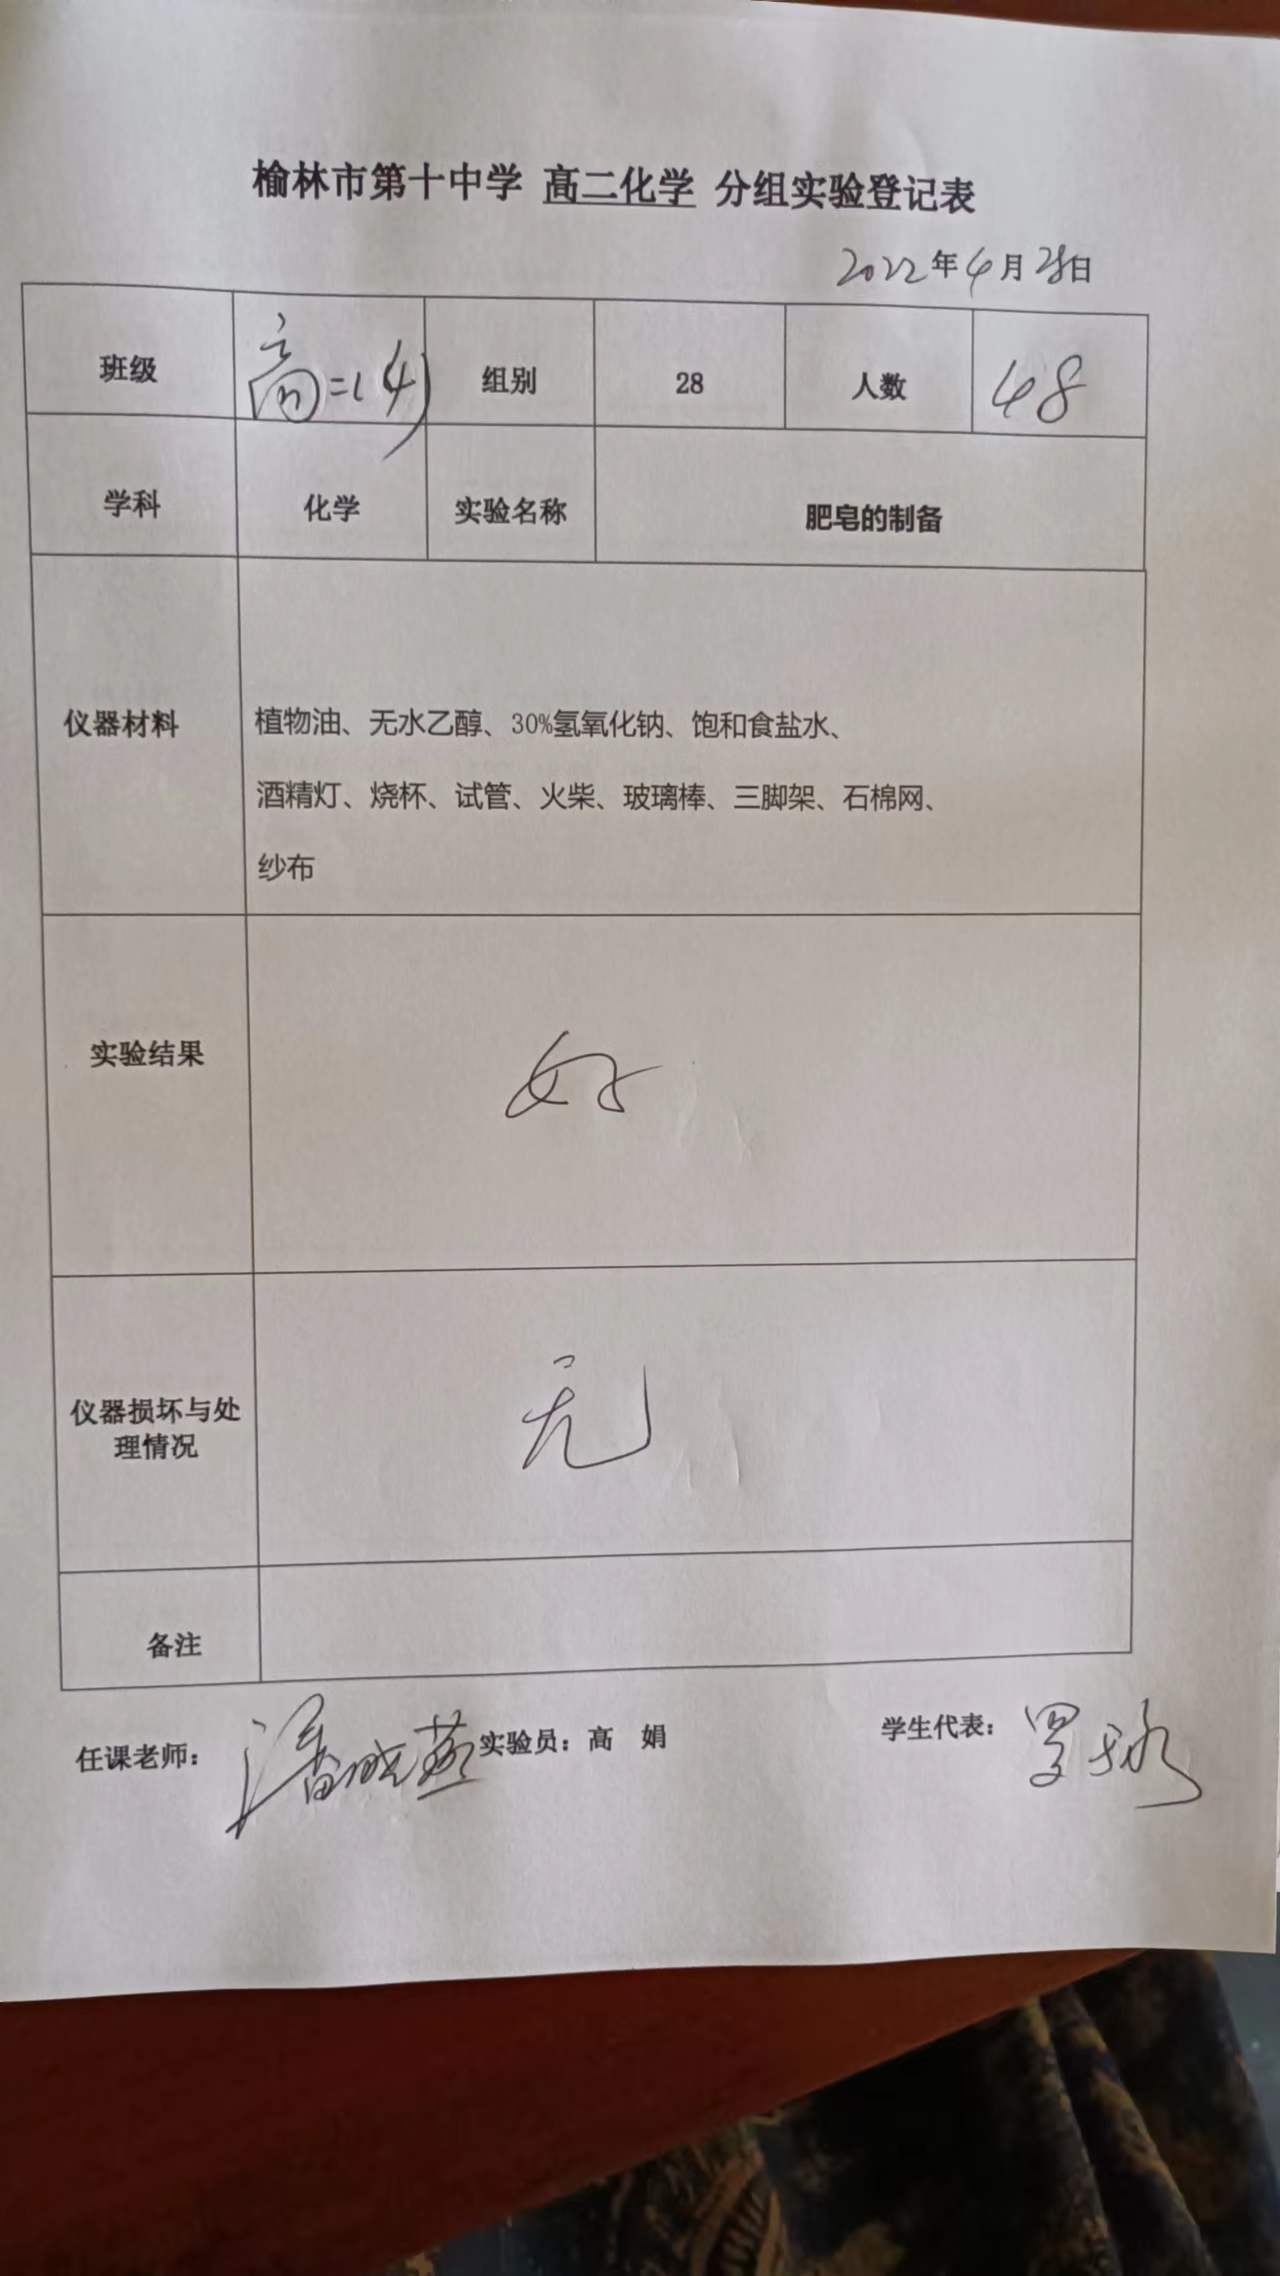 榆林市第十中学 高二化学 分组实验登记表
2022年4月28日
班级 高二(4) 组别 28 人数 48
学科 化学 实验名称 肥皂的制备
仪器材料
植物油、无水乙醇、30%氢氧化钠、饱和食盐水、
酒精灯、烧杯、试管、火柴、玻璃棒、三脚架、石棉网、
纱布
实验结果 好
仪器损坏与处
理情况
无
备注
任课老师：潘晓燕 实验员：高 娟 学生代表：罗